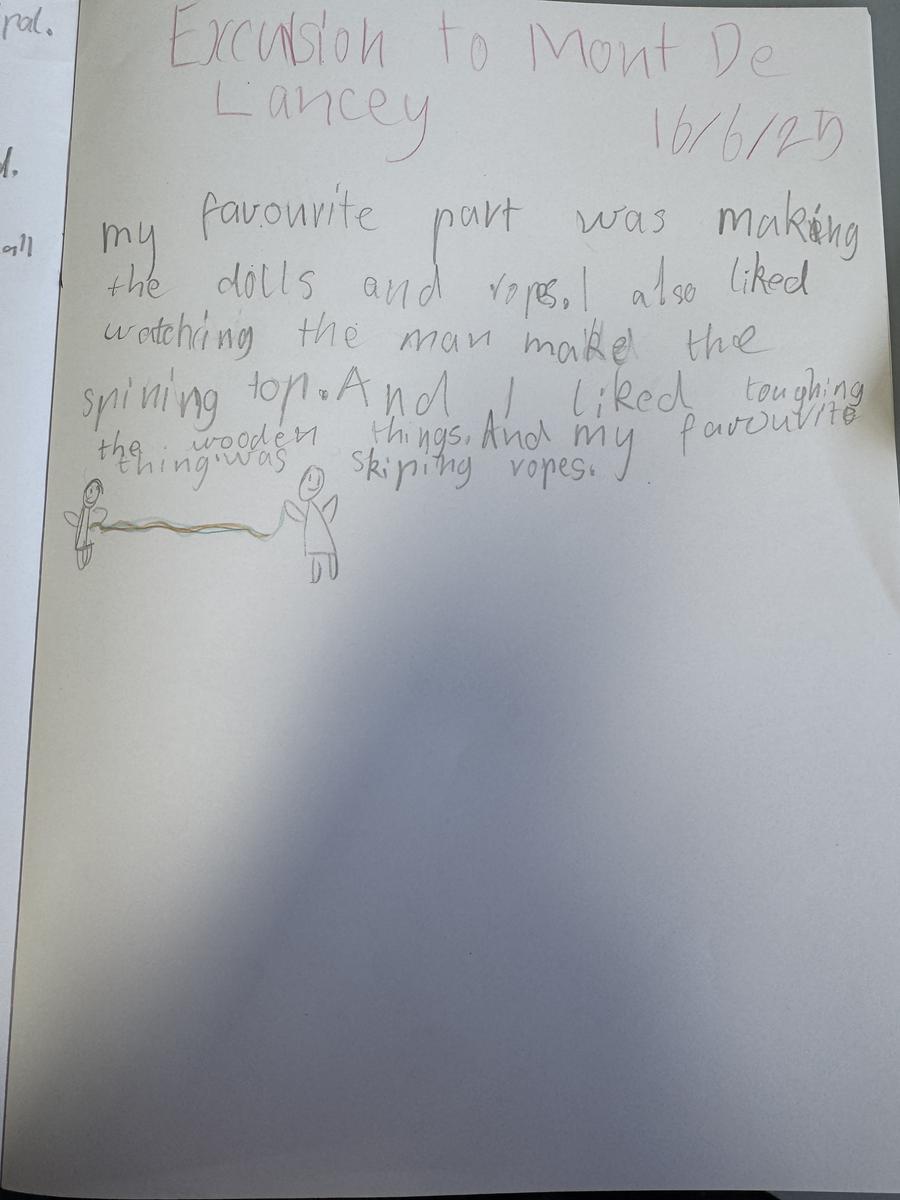 ral.
d.
all
Excursion to Mont De
Lancey
16/6/25
my favourite part was making
the dolls and ropes. I also liked
watching the man make the
spining top. And I liked toughing
the wooden things. And my favourite
thing was skiping ropes.